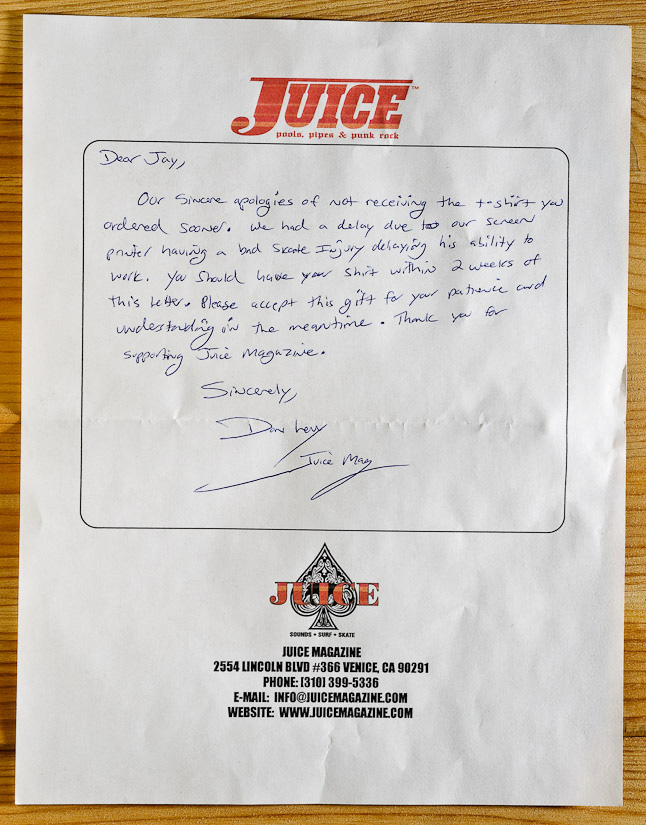 JUICE™
pools, pipes & punk rock
Dear Jay,
Our Sincere apologies of not receiving the t-shirt you
ordered sooner. We had a delay due to our screen
printer having a bad skate Injury delaying his ability to
work. You should have your shirt within 2 weeks of
this letter. Please accept this gift for your patience and
understanding in the meantime. Thank you for
supporting Juice Magazine.
Sincerely,
Dan Levy
Juice Mag
JUICE
SOUNDS • SURF • SKATE
JUICE MAGAZINE
2554 LINCOLN BLVD #366 VENICE, CA 90291
PHONE: (310) 399-5336
E-MAIL: INFO@JUICEMAGAZINE.COM
WEBSITE: WWW.JUICEMAGAZINE.COM